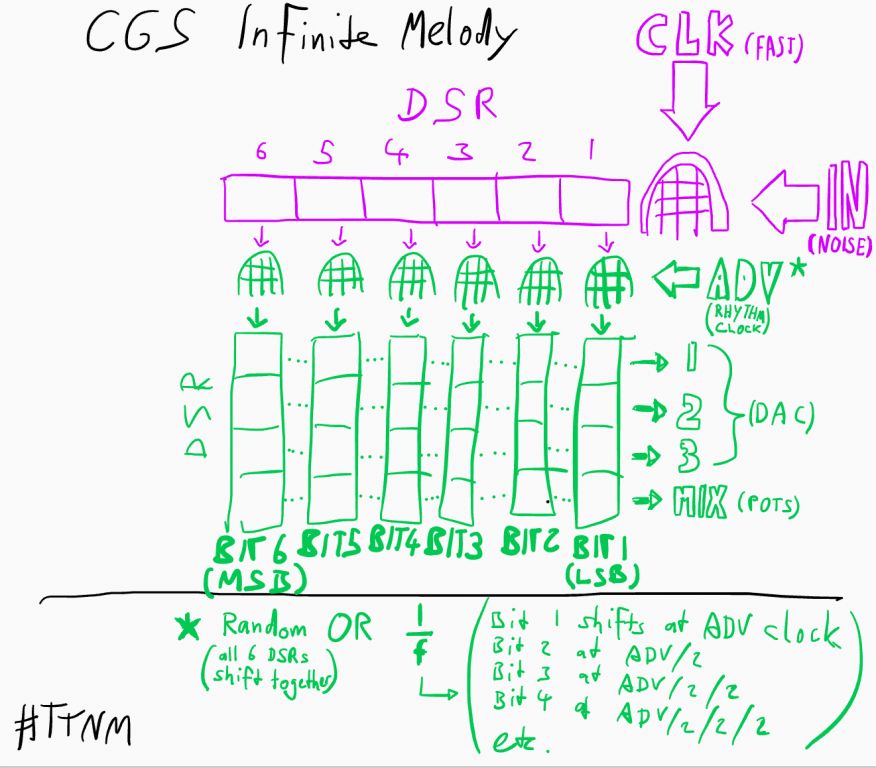 CGS Infinite Melody
CLK (FAST)
DSR
6 5 4 3 2 1
IN
(NOISE)
ADV*
(RHYTHM
CLOCK)
DSR
1
2
3
(DAC)
MIX (POTS)
BIT 6 BIT5 BIT4 BIT3 BIT2 BIT1
(MSB) (LSB)
* Random OR 1/f
(all 6 DSRs
shift together)
Bit 1 shifts at ADV clock
Bit 2 at ADV/2
Bit 3 at ADV/2/2
Bit 4 at ADV/2/2/2
etc.
#TTNM